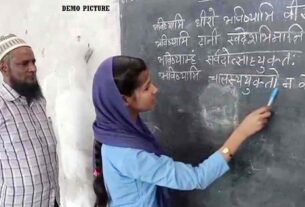 DEMO PICTURE
भविष्यामि धीरो भविष्यामि वीर
भविष्यामि दानी स्वदेशाभिमानि
भविष्याम्यहं सर्वदोत्साहयुक्तः
भविष्यामि चालस्ययुक्तो न